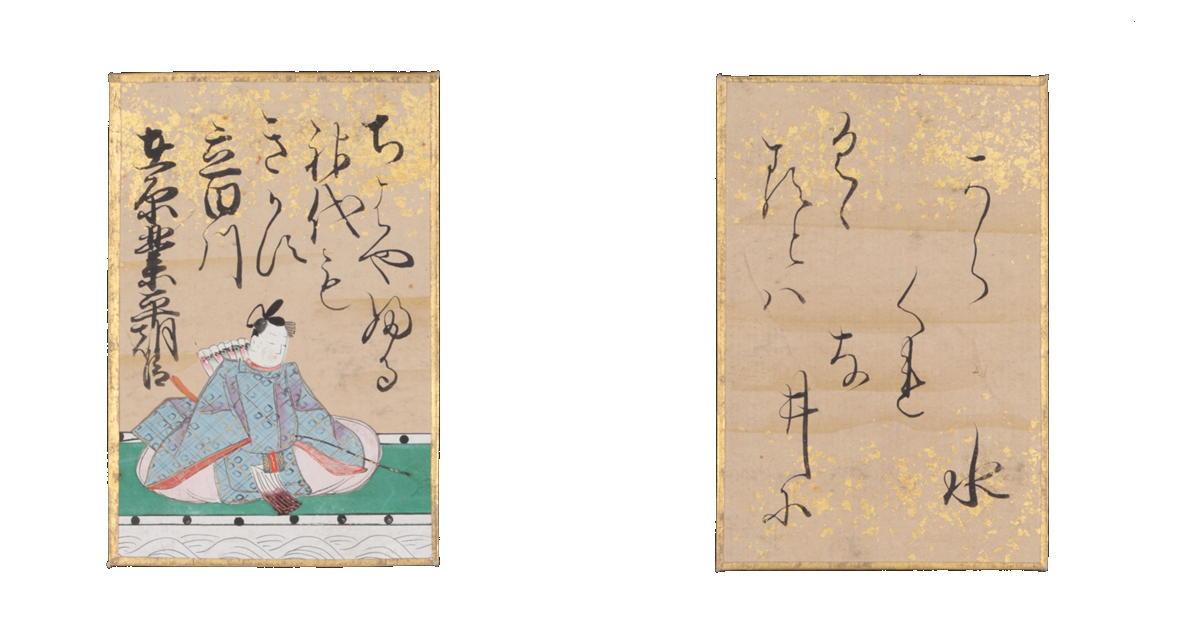 ちはやふる
神代も
きかす
立田川
在原業平朝臣
から
くれ
な
井に
水
くゝ
るとハ